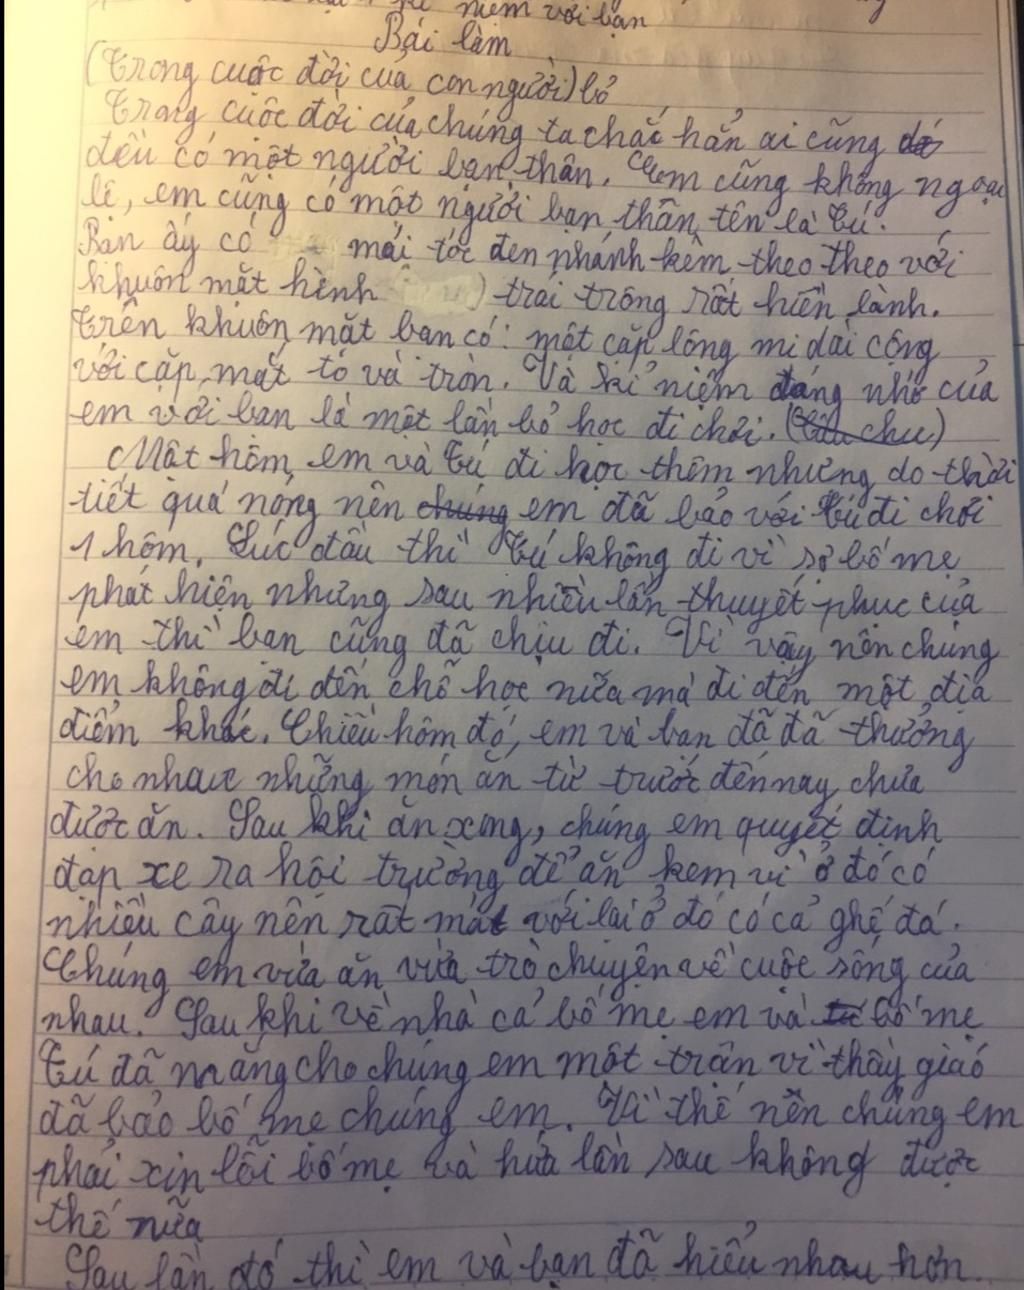 niệm với bạn
Bài làm
(Trong cuộc đời của con người) bỏ
Trong cuộc đời của chúng ta chắc hẳn ai cũng
đều có một người bạn thân. Em cũng không ngoại
lệ, em cũng có một người bạn thân tên là Tú.
Bạn ấy có mái tóc đen nhánh kèm theo theo với
khuôn mặt hình trái trông rất hiền lành.
Trên khuôn mặt bạn có: một cặp lông mi dài cộng
với cặp mắt to và tròn. Và kỉ niệm đáng nhớ của
em với bạn là một lần bỏ học đi chơi.
Một hôm, em và Tú đi học thêm nhưng do thời
tiết quá nóng nên chúng em đã bảo với Tú đi chơi
1 hôm. Lúc đầu thì Tú không đi vì sợ bố mẹ
phát hiện nhưng sau nhiều lần thuyết phục của
em thì bạn cũng đã chịu đi. Vì vậy nên chúng
em không đi đến chỗ học nữa mà đi đến một địa
điểm khác. Chiều hôm đó, em và bạn đã đã thưởng
cho nhau những món ăn từ trước đến nay chưa
được ăn. Sau khi ăn xong, chúng em quyết định
đạp xe ra hội trường để ăn kem vì ở đó có
nhiều cây nên rất mát với lại ở đó có cả ghế đá.
Chúng em vừa ăn vừa trò chuyện về cuộc sống của
nhau. Sau khi về nhà cả bố mẹ em và bố mẹ
Tú đã mắng cho chúng em một trận vì thầy giáo
đã báo bố mẹ chúng em. Vì thế nên chúng em
phải xin lỗi bố mẹ và hứa lần sau không được
thế nữa
Sau lần đó thì em và bạn đã hiểu nhau hơn.